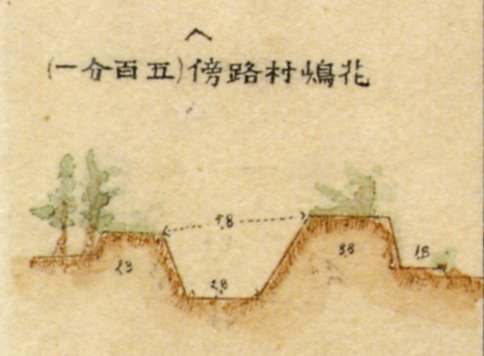 へ
花嶋村路傍(五百分一)
2.3
2.8
3.8
1.8